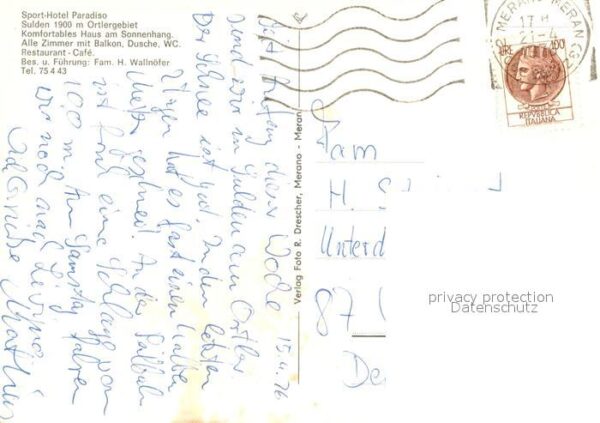 Sport-Hotel Paradiso
Sulden 1900 m Ortlergebiet
Komfortables Haus am Sonnenhang.
Alle Zimmer mit Balkon, Dusche, WC.
Restaurant - Café.
Bes. u. Führung: Fam. H. Wallnöfer
Tel. 75 4 43
15.4.76
Seit Anfang dieser Woche
sind wir in Sulden am Ortler.
Der Schnee ist gut. In den letzten
Tagen hat es fast einen halben
Meter geschneit. An der Seilbahn
ist eine Schlange von
100 m. Am Samstag fahren
wir noch nach Livigno
Grüße
Verlag Foto R. Drescher, Merano - Meran
MERANO - MERAN
17
21-4
LIRE 100
POSTE
REPUBBLICA
ITALIANA
Fam
H.
Unterd
87
De
privacy protection
Datenschutz